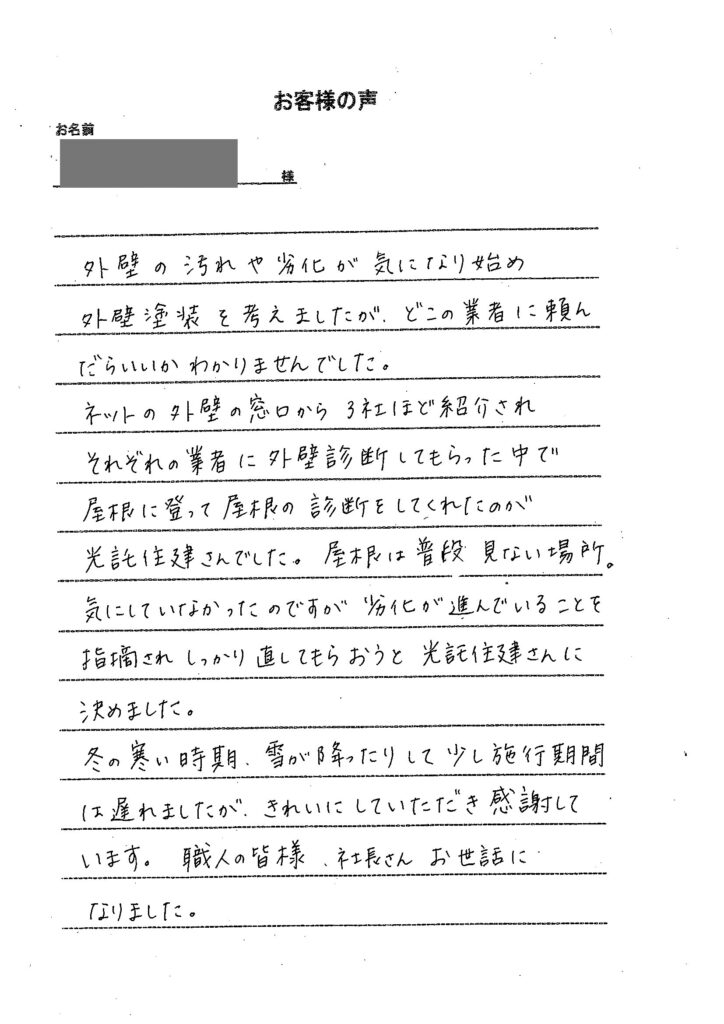 お客様の声
お名前
様
外壁の汚れや劣化が気になり始め
外壁塗装を考えましたが、どこの業者に頼ん
だらいいかわかりませんでした。
ネットの外壁の窓口から3社ほど紹介され
それぞれの業者に外壁診断してもらった中で
屋根に登って屋根の診断をしてくれたのが
光託住建さんでした。屋根は普段見ない場所。
気にしていなかったのですが劣化が進んでいることを
指摘されしっかり直してもらおうと光託住建さんに
決めました。
冬の寒い時期、雪が降ったりして少し施行期間
は遅れましたが、きれいにしていただき感謝して
います。職人の皆様、社長さんお世話に
なりました。